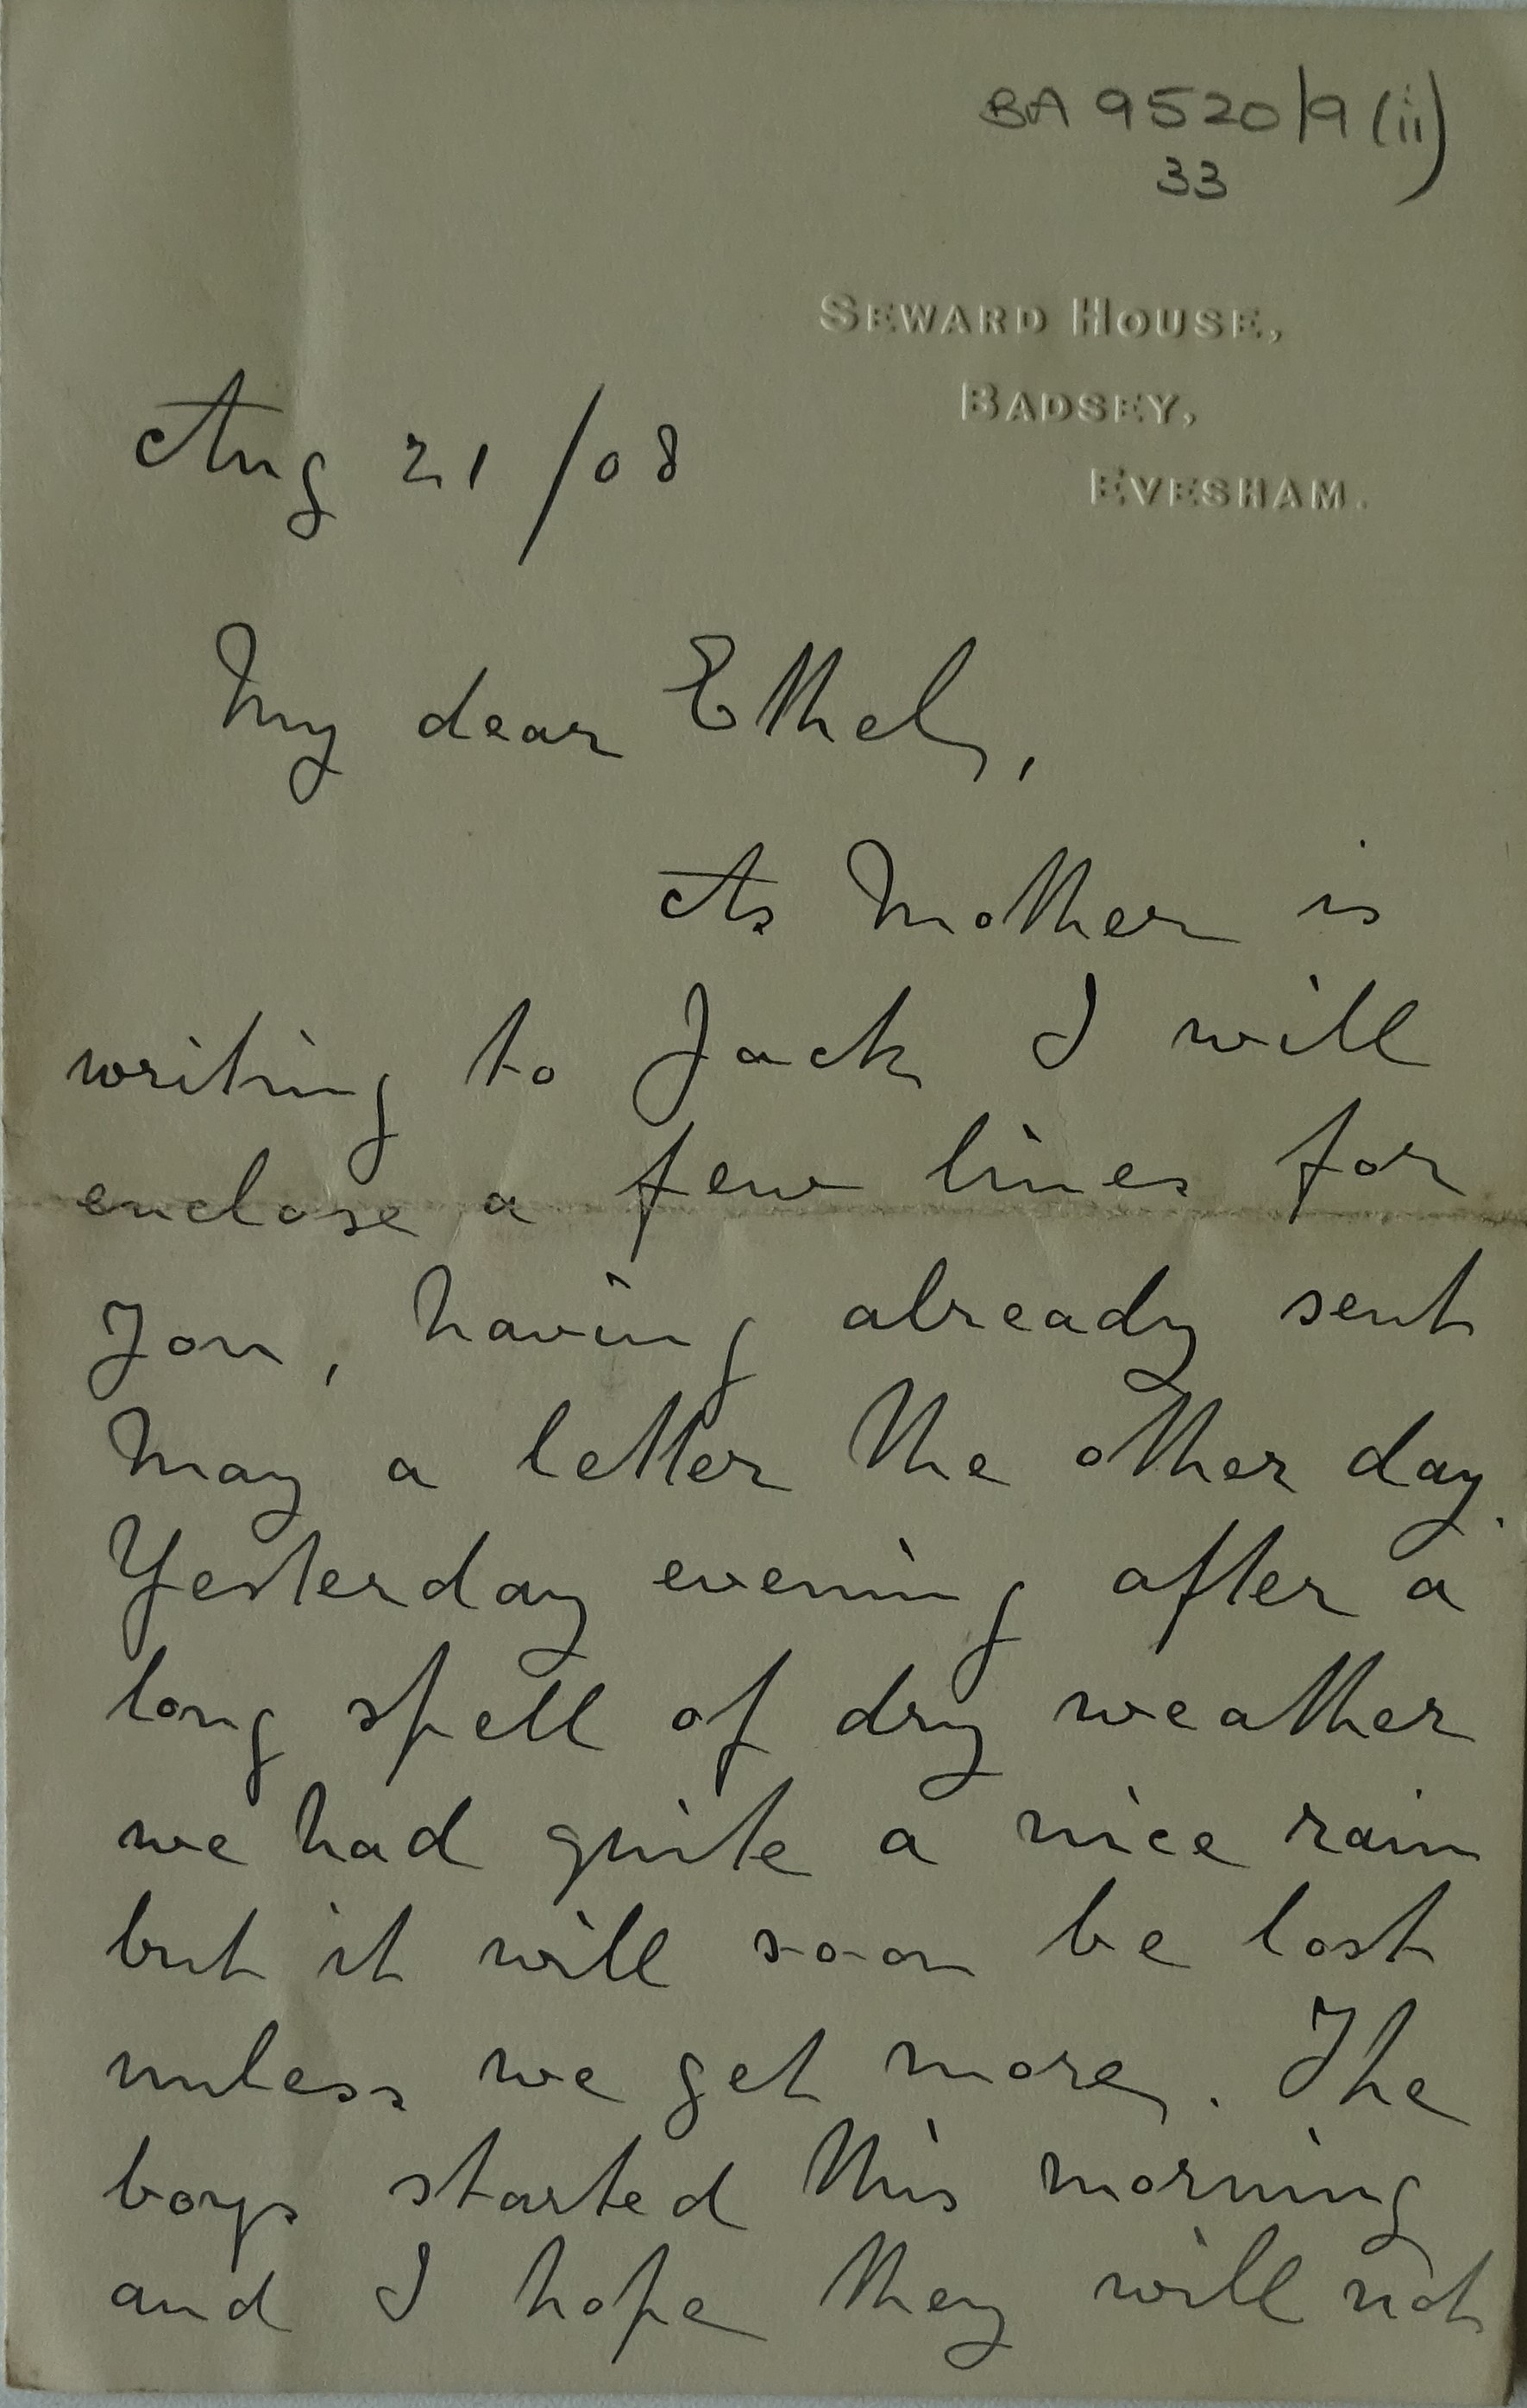 BA 9520/9 (ii)
33
SEWARD HOUSE,
BADSEY,
EVESHAM.
Aug 21 /08
My dear Ethel,
As Mother is
writing to Jack I will
enclose a few lines for
you, having already sent
May a letter the other day.
Yesterday evening after a
long spell of dry weather
we had quite a nice rain
but it will soon be lost
unless we get more. The
boys started this morning
and I hope they will not